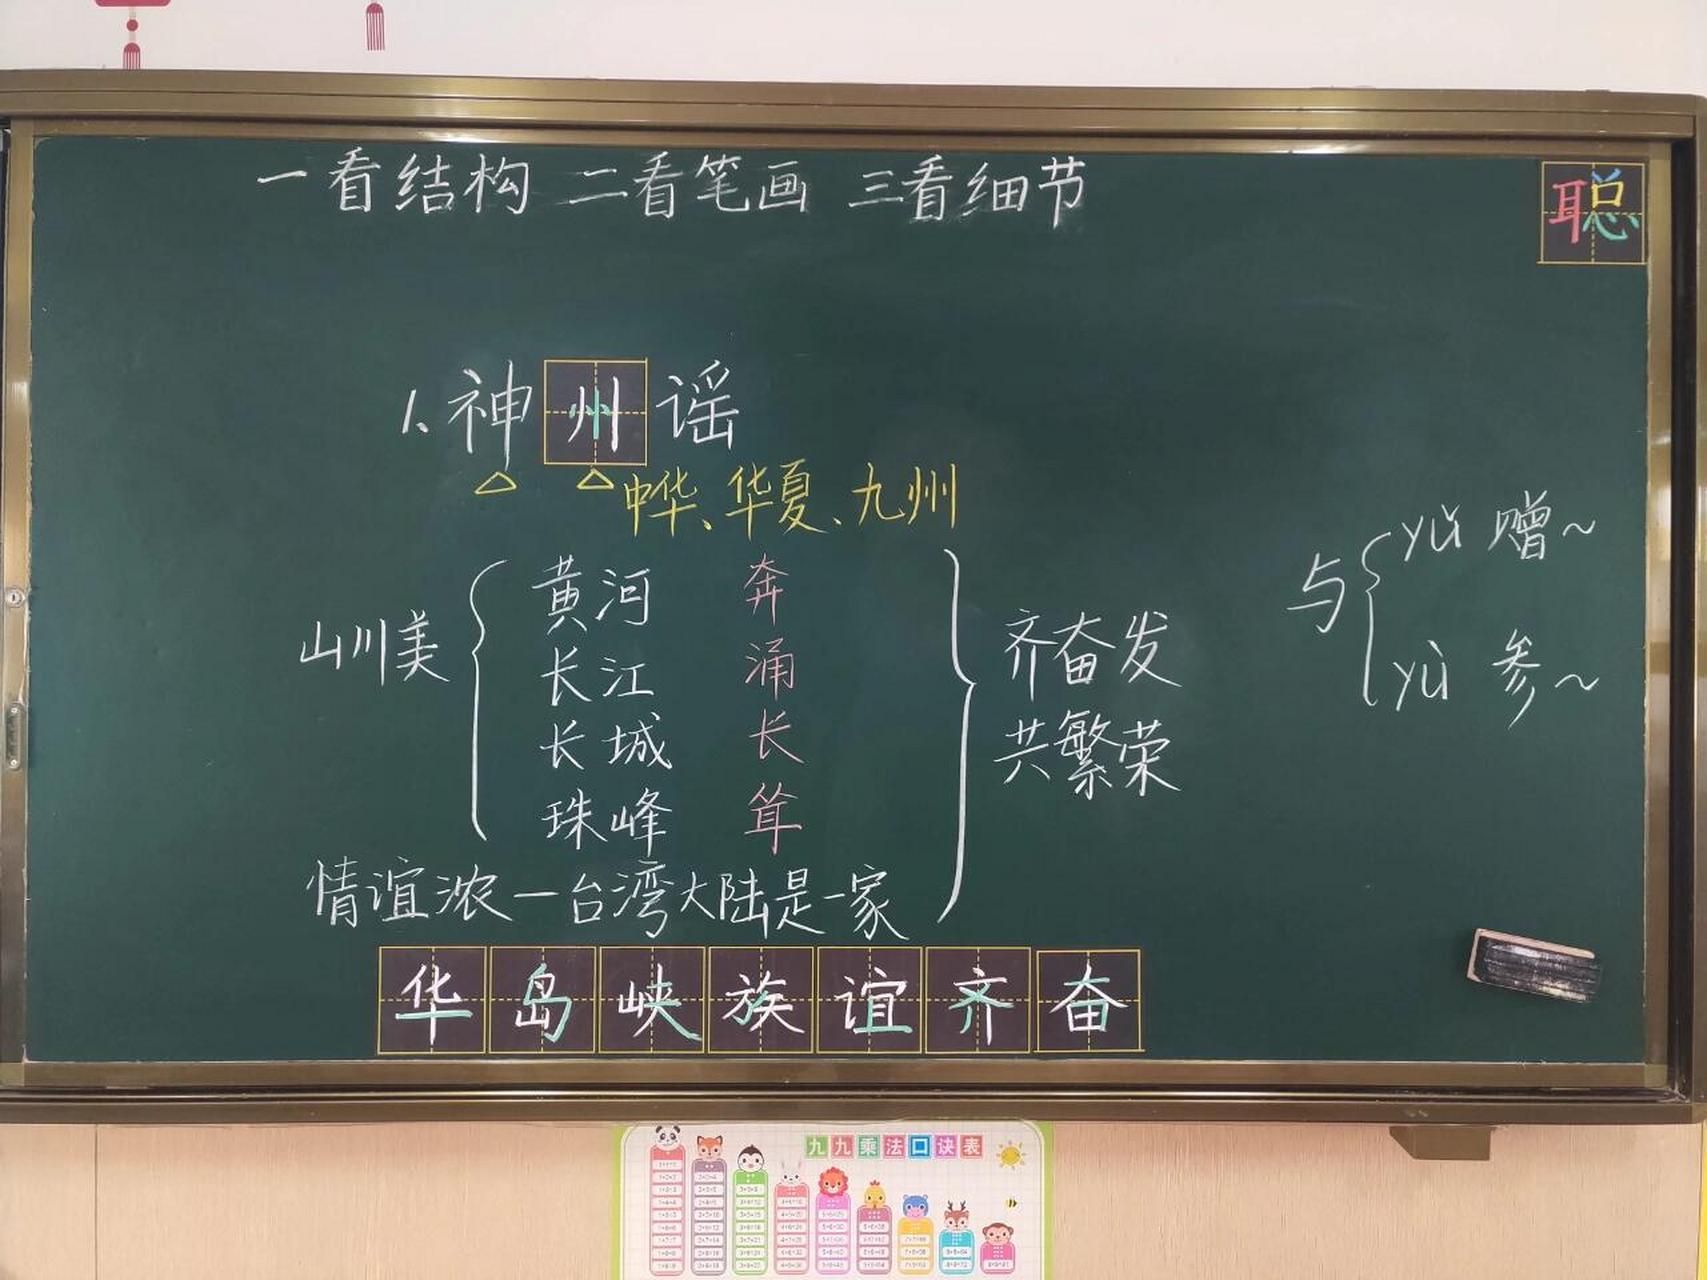 一看结构 二看笔画 三看细节
聪
1、神州谣
中华、华夏、九州
山川美
黄河 奔
长江 涌
长城 长
珠峰 耸
情谊浓一台湾大陆是一家
齐奋发
共繁荣
与
yǔ 赠~
yù 参~
华岛峡族谊齐奋
九九乘法口诀表